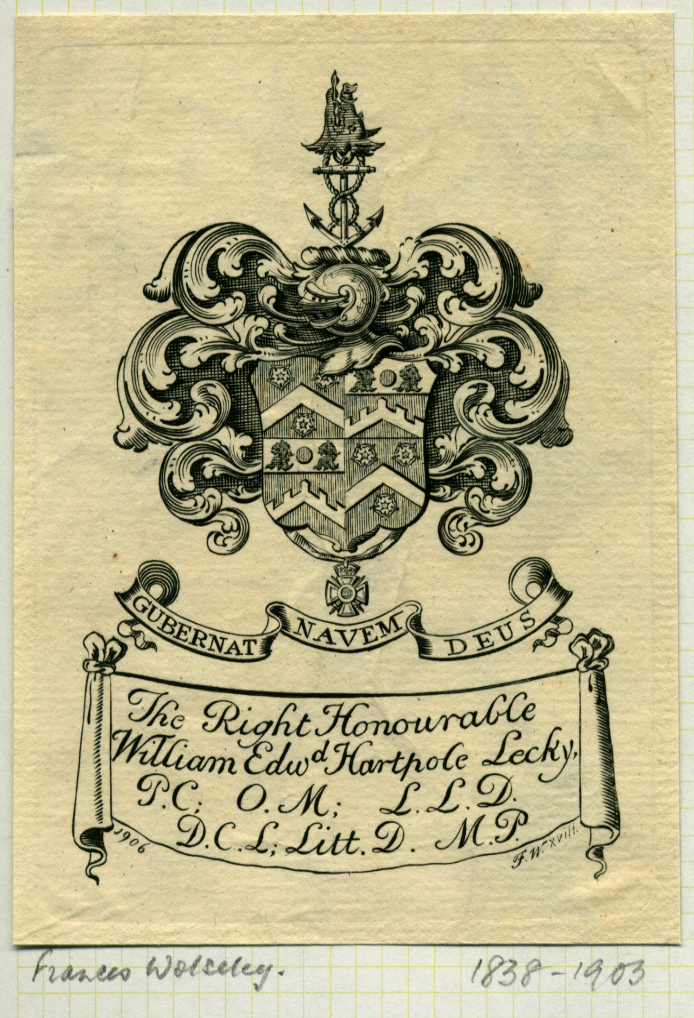 GUBERNAT NAVEM DEUS
The Right Honourable
William Edwd Hartpole Lecky,
P.C; O.M; L.L.D.
D.C.L; Litt.D. M.P.
1906 F.W. xviii.
Frances Wolseley. 1838-1903